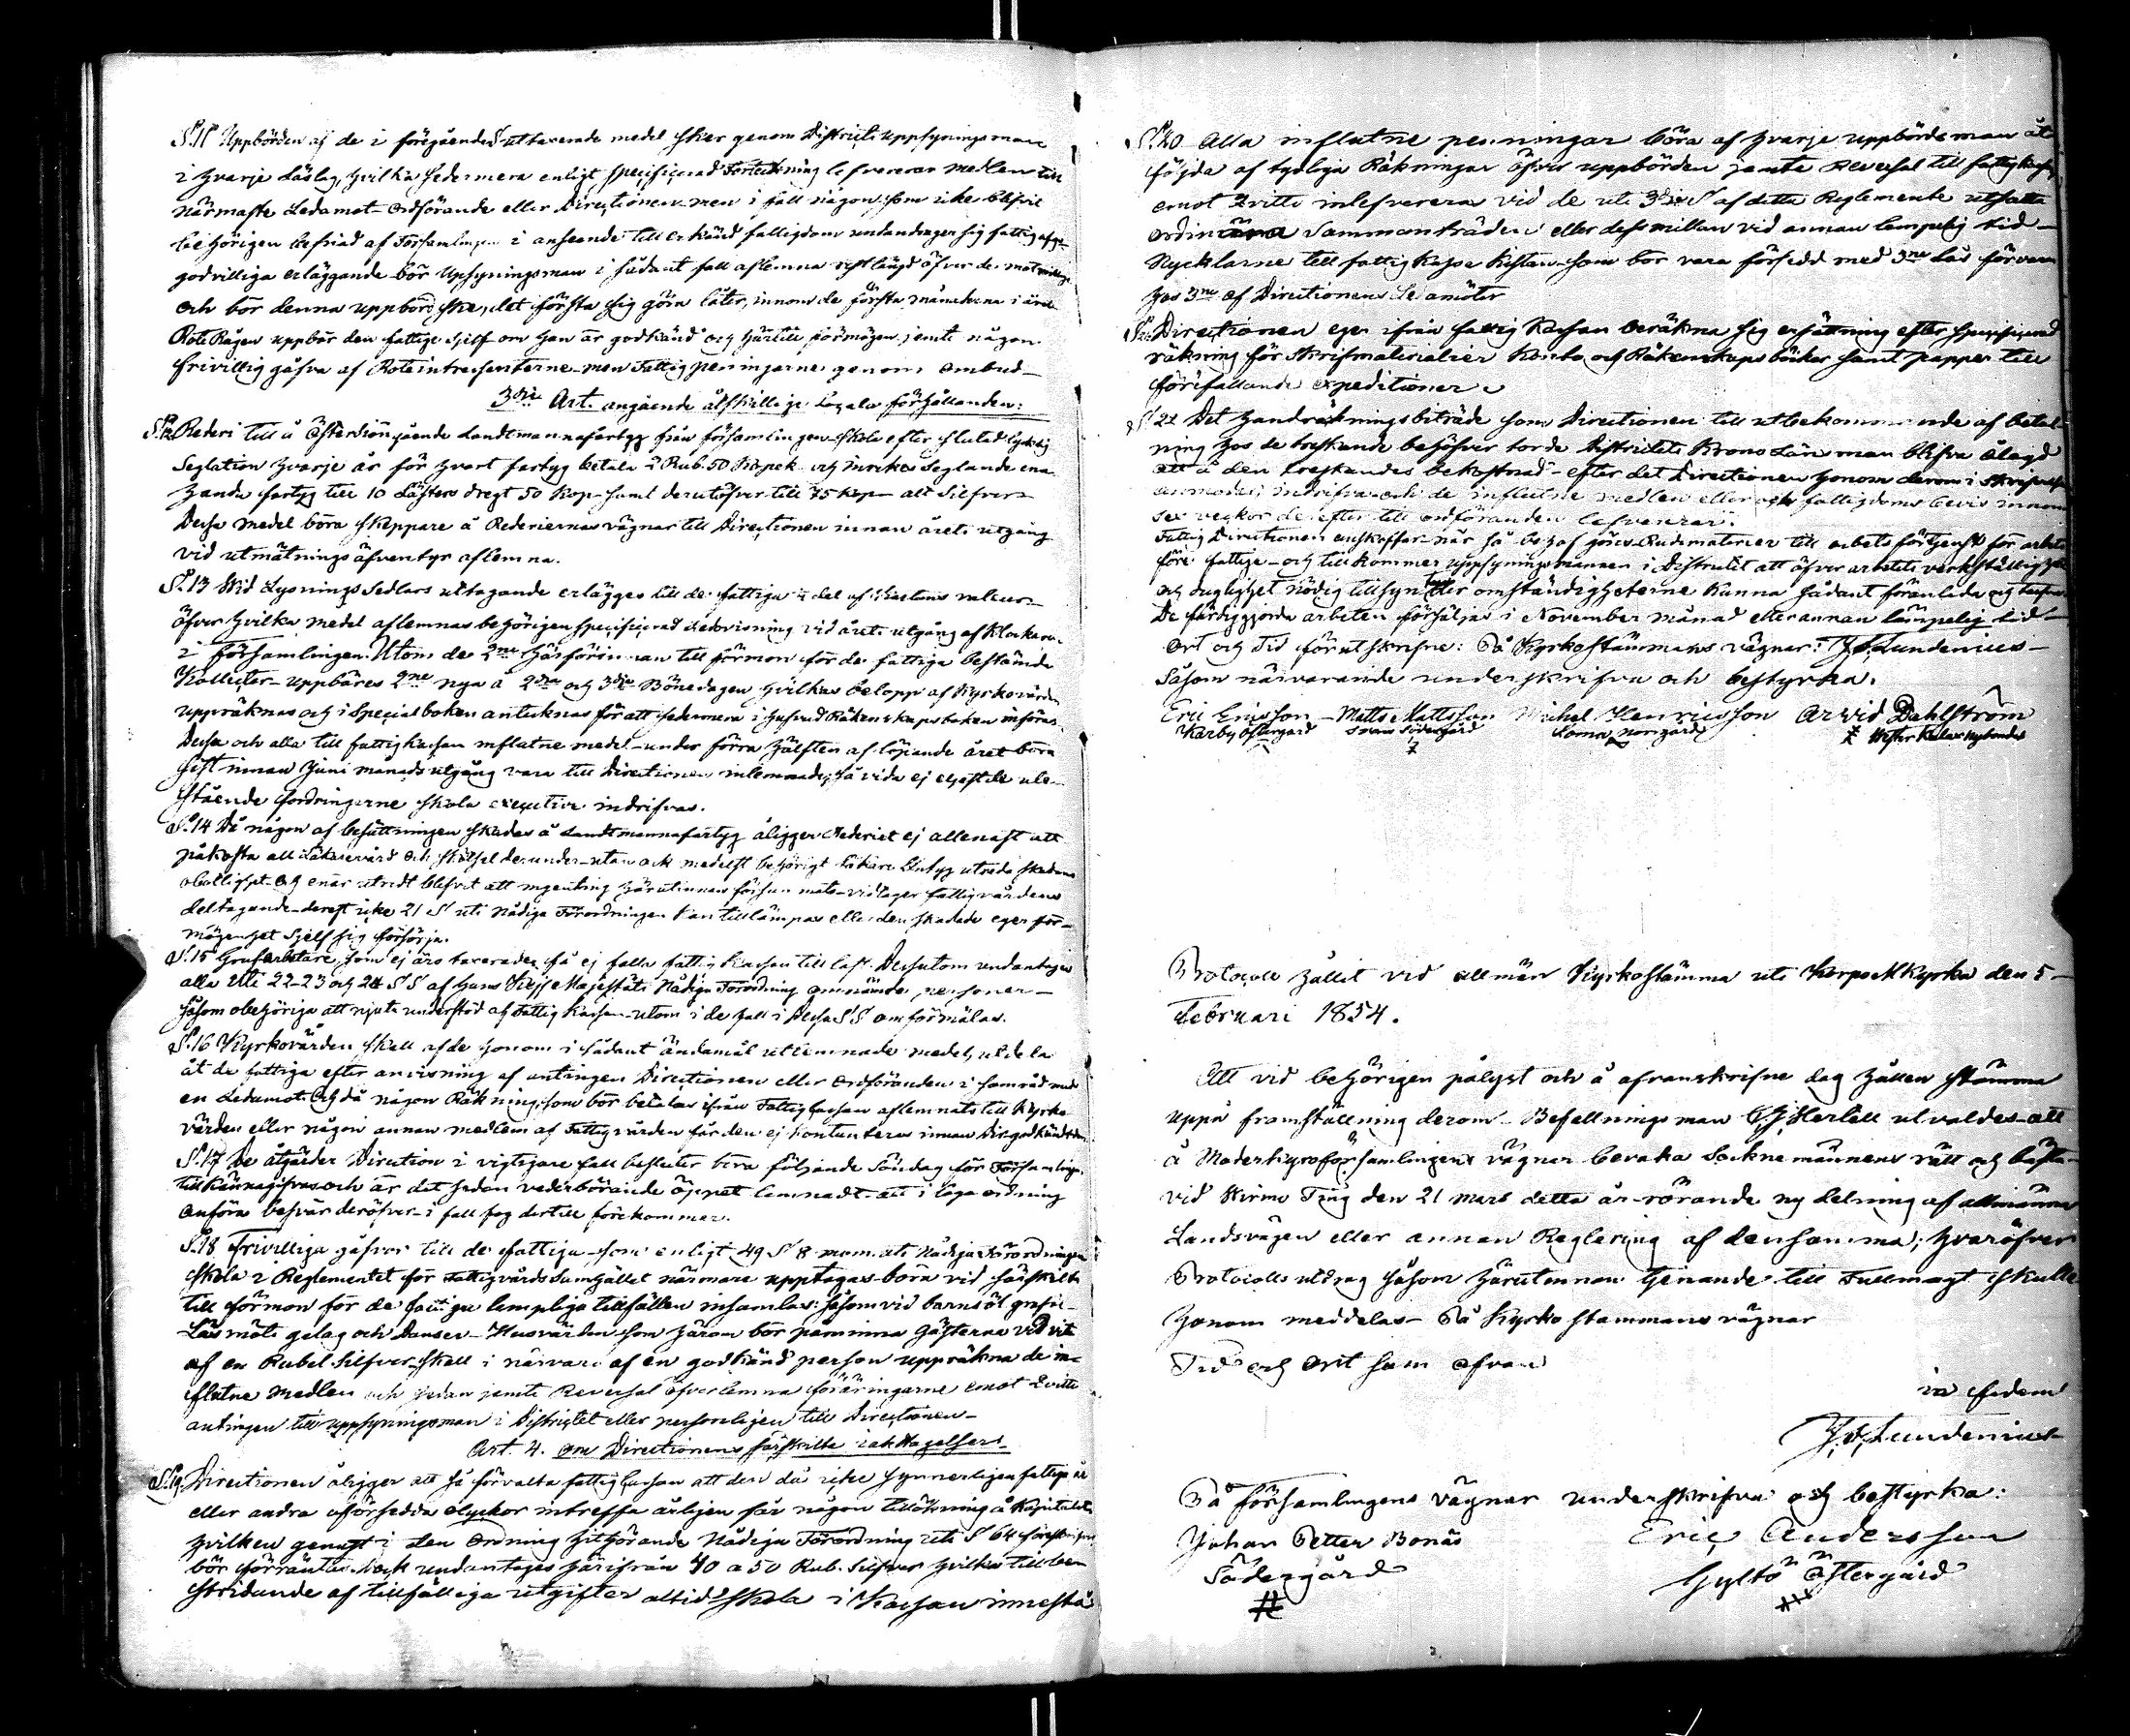 §.11 Uppbörden af de i föregående § uttaxerade medel sker genom Districts uppsyningsman
i hvarje Läslag, hvilka sedermera enligt specificerad Förteckning lefvererar medlen till
närmaste Ledamot - Ordförande eller Directionen - men i fall någon som icke blifvit
behörigen befriad af Församlingen i anseende till erkänd fattigdom undandrager sig fattigafgif-
godvilliga erläggande bör Upsyningsman i sådant fall aflemna restlängd öfver de motvillige
och bör denna uppbörd ske, det första sig göra låter, innom de första månaderna i året
Rote Rågen uppbär den fattige sjelf om han är godkänd och härtill förmögen jemte någon
frivillig gåfva af Roteintressenterne - men Fattigpenningarne genom ombud -
3dje Art. angående åtskillige Locala förhållanden:
§.12 Rederi till å Östersiön gående Landtmannafartyg från församlingen - skola efter slutad lycklig
Seglation hvarje år för hvart fartyg betala 1 Rub. 50 Kopek och inrikes Seglande ena
handa fartyg till 10 Lästers dregt 50 Kop - samt derutöfver till 75 Kop - alt Silfver -
Dessa medel böra Skeppare å Rederiernas vägnar till Directionen innan årets utgång
vid utmätnings äfventyr aflemna.
§.13 Wid Lysnings Sedlars uttagande erlägges till de fattiga del af
öfver hvilka medel aflemnas behörigen specificerad Redovisning vid årets utgång af Klockaren
i församlingen. Utom de 2ne härförinnan till förmon för de fattiga bestämde
Kollecter - uppbäres 2ne nya å 2dra och 3dje Bönedagen hvilkas belopp af Kyrkovärden
uppräknas och i Specialboken antecknas för att sedermera i hufvud Räkenskapsboken införas
Dessa och alla till fattigkassan influtne medel - under förra hälften af löpande året böra
sist innan Juni månads utgång vara till Directionen inlemnade, så vida ej ute-
stående fordringarne skola executive indrifvas.
§.14 Då någon af besättningen skadas å Landtmannafartyg åligger Rederiet ej allenast att
påkosta all Läkarevård och skötsel derunder - utan ock medelst behörigt Läkare Intyg utreda skadans
obotlighet - Och enär utredt blifvit att ingenting härutinnan försummats - vidtager fattigvårdens
deltagande - derest icke 21 § uti Nådiga Förordningen kan tillämpas eller den skadade eger för-
mögenhet sjelf sig försörja.
§.15 Grufarbetare, som ej äro taxerade, få ej falla fattig Kassan till last. Dessutom undantages
alla uti 22 - 23 och 24 §§ af Hans Kejs: Majestäts Nådiga Förordning omnämnde personer -
såsom obehöriga att njuta understöd af Fattig Kassan - utom i de fall i dessa §§ omförmälas.
§.16 Kyrkovärden skall af de honom i sådant ändamål utlemnade medel, utdela
åt de fattiga efter anvisning af antingen Directionen eller Ordföranden i samråd med
en Ledamot. Och då någon Räkning, som bör betalas ifrån Fattigcassan aflemnats till Kyrko
värden eller någon annan medlem af Fattigvården får den ej konteras innan Dir. godkändt den.
§.17 De åtgärder Direction i vigtigare fall besluter böra följande Söndag för Församlingen
tillkännagifvas och är det sedan vederbörande öppet lemnadt att i laga ordning
anföra besvär deröfver - i fall fog dertill förekommer.
§.18 Frivilliga gåfvor till de fattiga - som enligt 49 § 8 mom. uti Nådiga Förordningen
skola i Reglementet för Fattigvårds Samhället närmare upptagas - böra vid särskilta
till förmon för de fattiga lämpliga tillfällen insamlas: såsom vid barnsöl graföl
Läsmöts gelag och Danser - Husvärden som härom bör påminna Gästerna vid vite
af en Rubel Silfver - skall i närvaro af en godkänd person uppräkna de in-
flutne medlen och sedan jemte Reversal öfverlemna föräringarne emot Qvitto
antingen till uppsyningsman i Districtet eller personligen till Directionen -
Art. 4. om Directionens särskilta iakttagelser -
§.19. Directionen åligger att så förvalta fattigcassan att den då icke synnerligen fattiga år
eller andra oförsedda olyckor inträffa årligen får någon tillökning å Kapitalet
hvilken genast i den Ordning hithörande Nådiga Förordning uti § 64 föreskrifver
bör förräntas. Dock undantages härifrån 40 a 50 Rub. Silfver hvilka till be-
stridande af tillfälliga utgifter altid skola i Kassan innestå
§.20 Alla influtne penningar böra af hvarje uppbördsman åt
följda af tydliga Räkningar öfver uppbörden jemte Reversal till fattigkassan
emot Qvitto inlefvereras vid de uti 3dje § af detta Reglemente utsatta
Ordinära Sammanträden eller dessmillan vid annan lämpelig tid -
Nycklarne till fattig Kassa Kistan - som bör vara försedd med 3ne Lås förvaras
hos 3ne af Directionens Ledamöter
§.21 Directionen eger ifrån fattig Kassan beräkna sig ersättning efter specificerad
räkning för skrifmaterialier Konto och Räkenskapsböcker samt papper till
förefallande expeditioner.
§.22 Det handräkningsbiträde som Directionen till utbekommande af betal-
ning hos de treskande behöfver torde Districtets Krono Länsman blifva ålagd
att å den treskandes bekostnad - efter det Directionen honom derom i Skrifvelse
anmodat, indrifva och de influtne medlen eller ock fattigdoms bevis innom
sex veckor derefter till ordföranden lefvererar.
Fattig Directionen anskaffar - när så behof göres - Rudimaterier till arbets förtjenst för arbets
före fattige - och tillkommer uppsyningsmannen i Districtet att öfver arbetets verkställighet
och duglighet nödig tillsyn hafva der omständigheterne kunna sådant föranleda och
De färdiggjorda arbeten försäljas i November månad eller annan lämpelig tid -
Ort och Tid förutskrifne: På Kyrkostämmans vägnar: J. F. Lundenius -
Såsom närvarande underskrifva och bestyrka.
Eric Ericsson - Matts Mattsson Michel Henricsson Arvid Dahlström
Kärby Östergård Södergård Norrgård
Protocoll hållit vid allmän Kyrkostämma uti Korpo M Kyrka den 5 -
Februari 1854.
Att vid behörigen pålyst och å ofvanskrifne dag hållen Stämma
uppå framställning derom - Befallningsman C. J. Hertell utvaldes - att
å Moderkyrkoförsamlingens vägnar bevaka Sockne männens rätt och bästa
vid Kirmo Ting den 21 mars detta år - rörande ny delning af allmänna
Landsvägen eller annan Reglering af densamma; hvaröfver
Protocolls utdrag såsom härutinnan tjenande till Fullmagt skulle
honom meddelas - På Kyrko stämmans vägnar
Tid och Ort som ofvan
in fidem
J. F. Lundenius
På församlingens vägnar underskrifva och bestyrka:
Johan Petter Bonäs Eric Andersson
Södergård Gyltö Östergård